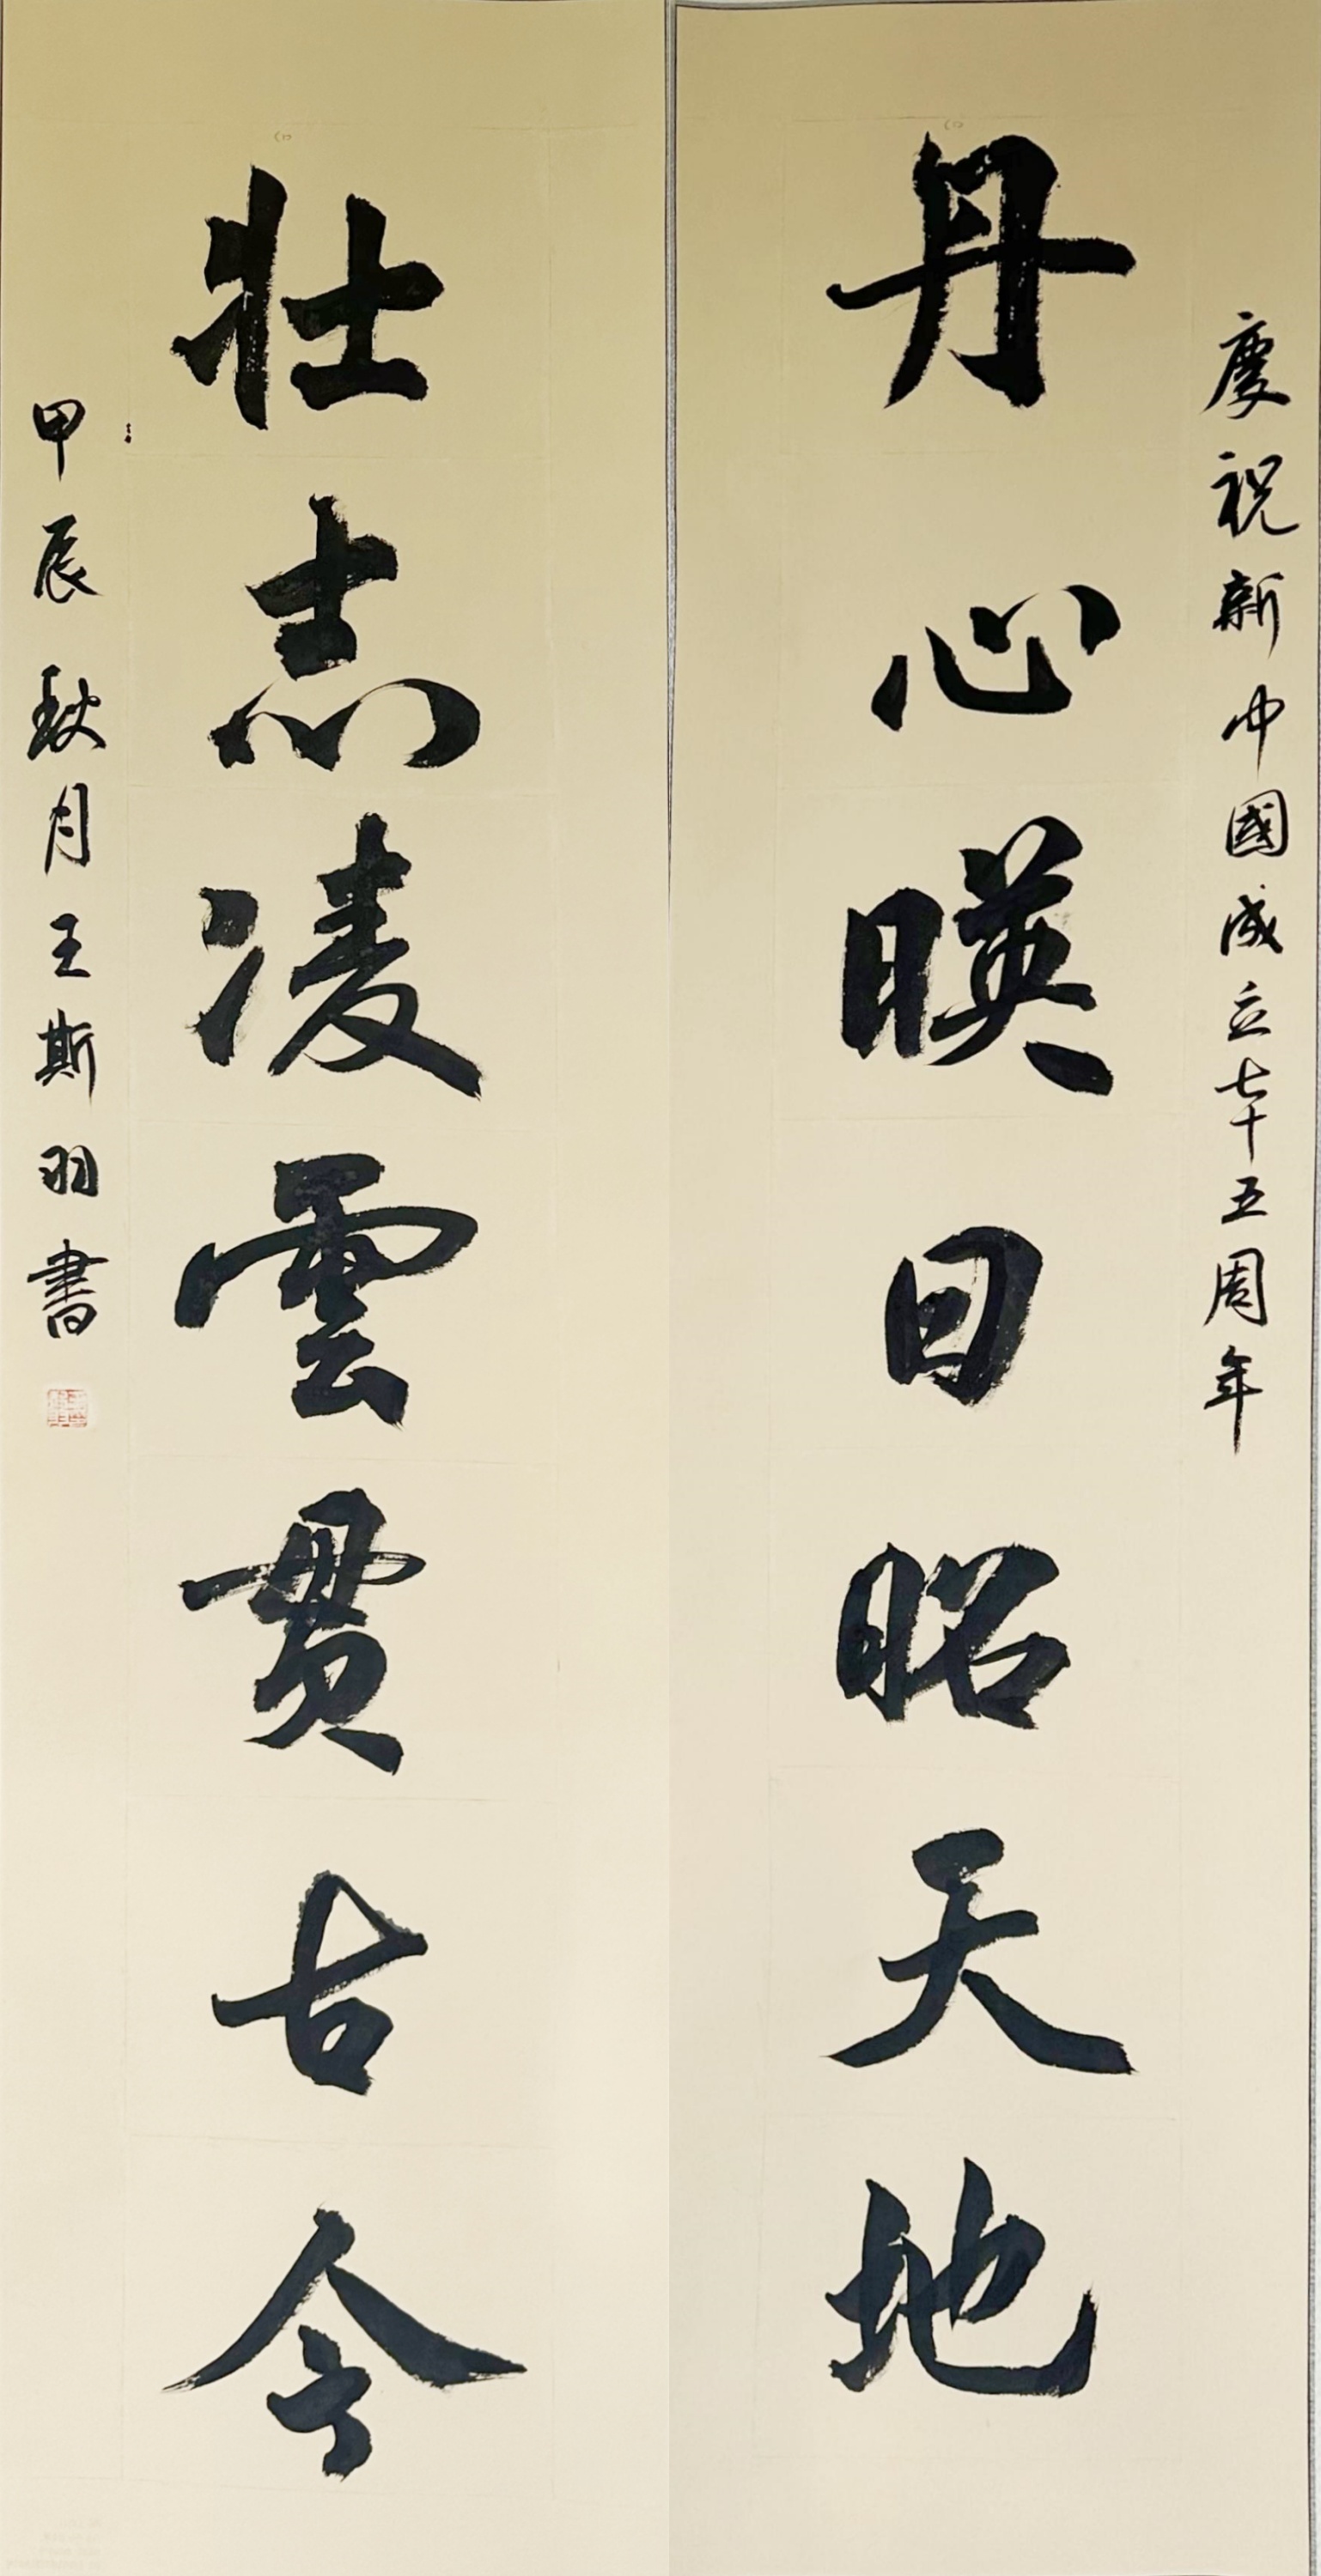 慶祝新中國成立七十五周年
丹心暎日昭天地
壮志凌雲貫古今
甲辰秋月王斯羽書